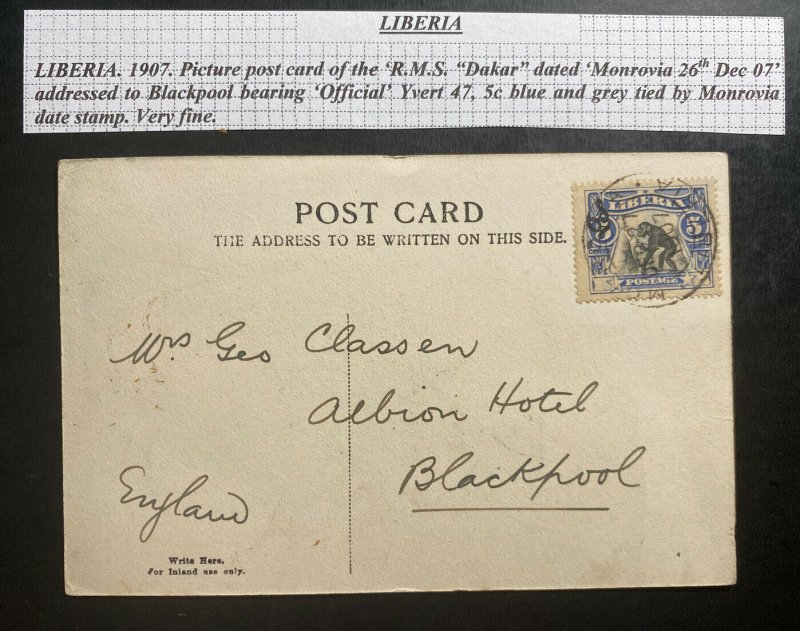 LIBERIA
LIBERIA. 1907. Picture post card of the ‘R.M.S. “Dakar” dated ‘Monrovia 26th Dec 07’
addressed to Blackpool bearing ‘Official’ Yvert 47, 5c blue and grey tied by Monrovia
date stamp. Very fine.
POST CARD
THE ADDRESS TO BE WRITTEN ON THIS SIDE.
LIBERIA
5
POSTAGE
Mrs Geo Classen
Albion Hotel
Blackpool
England
Write Here.
For Inland use only.